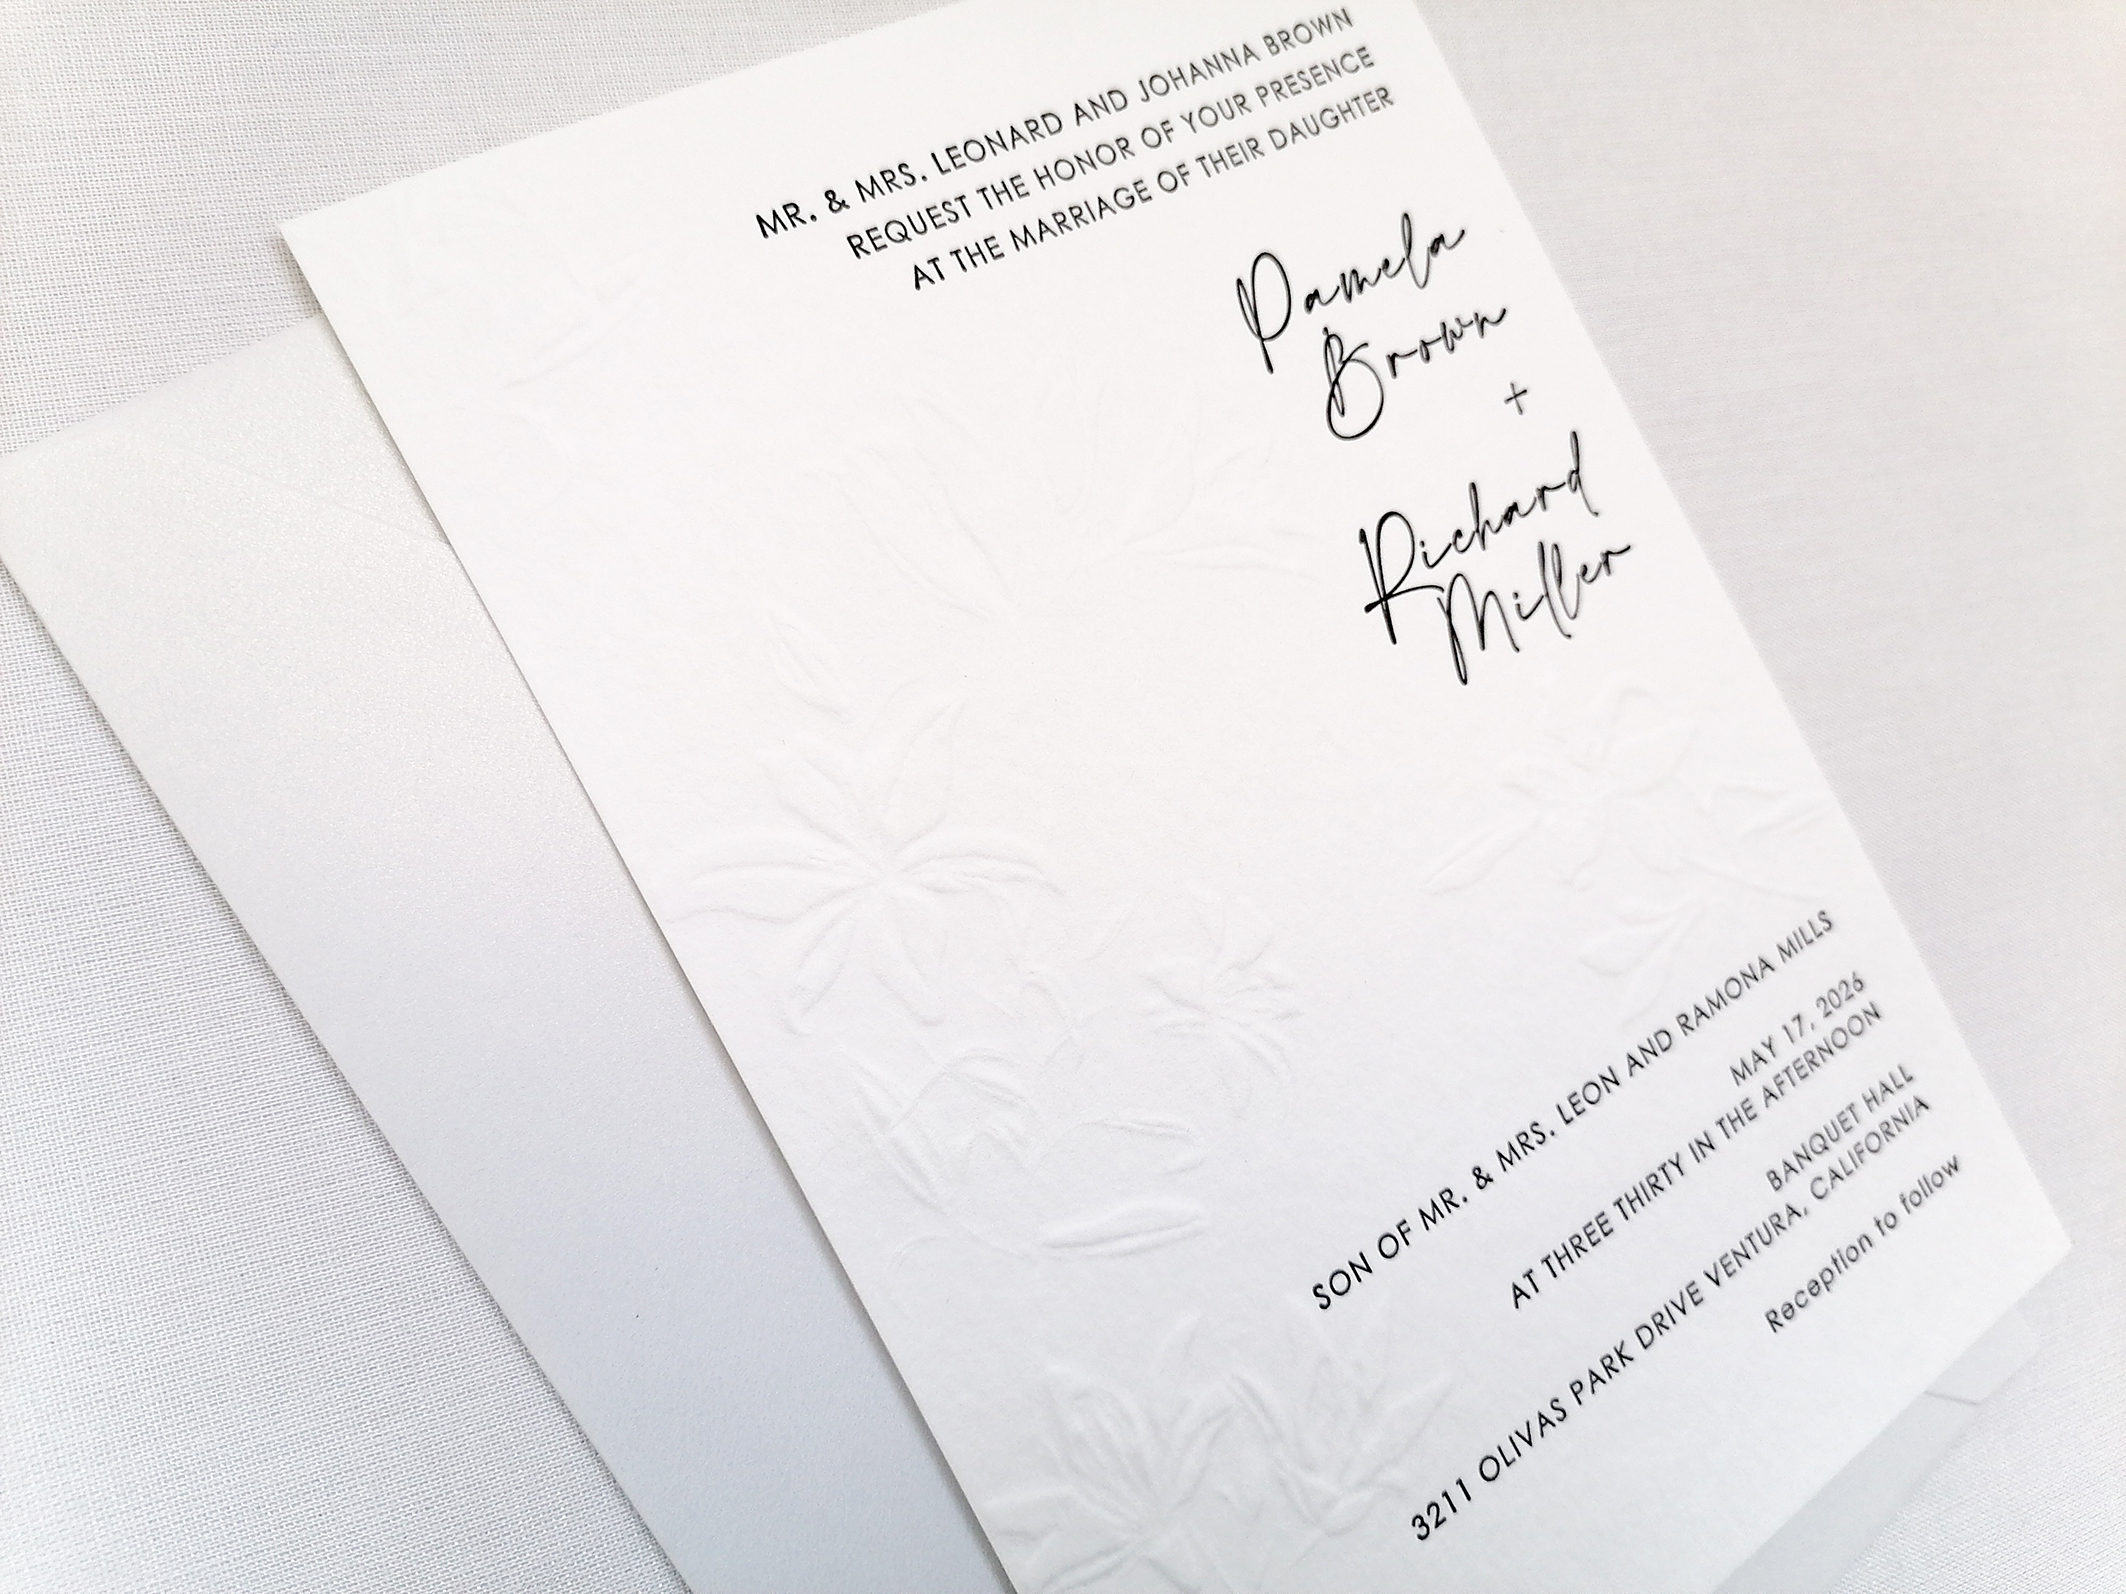 MR. & MRS. LEONARD AND JOHANNA BROWN
REQUEST THE HONOR OF YOUR PRESENCE
AT THE MARRIAGE OF THEIR DAUGHTER
Pamela
Brown
+
Richard
Miller
SON OF MR. & MRS. LEON AND RAMONA MILLS
MAY 17, 2026
AT THREE THIRTY IN THE AFTERNOON
BANQUET HALL
3211 OLIVAS PARK DRIVE VENTURA, CALIFORNIA
Reception to follow